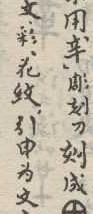 用「辛」彫刻刀刻成
文彩花紋引申为文